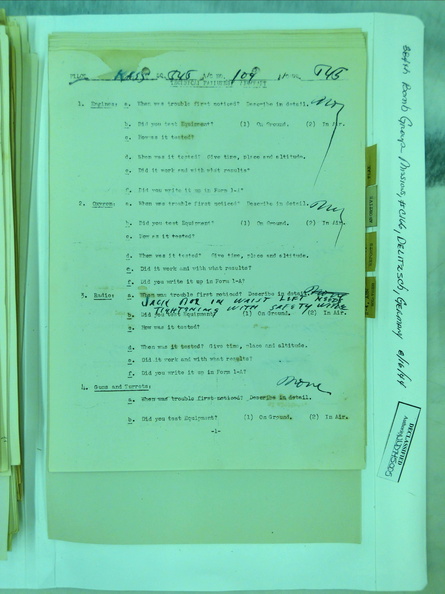 PILOT KASS SQ. 545 A/C NO. 109 545
TECHNICAL FAILURES REPORT
1. Engines: a. When was trouble first noticed? Describe in detail.
b. Did you test Equipment? (1) On Ground. (2) In Air.
c. How was it tested?
d. When was it tested? Give time, place and altitude.
e. Did it work and with what results?
f. Did you write it up in Form 1-A?
2. Oxygen: a. When was trouble first noticed? Describe in detail.
b. Did you test Equipment? (1) On Ground. (2) In Air.
c. How was it tested?
d. When was it tested? Give time, place and altitude.
e. Did it work and with what results?
f. Did you write it up in Form 1-A?
3. Radio: a. When was trouble first noticed? Describe in detail.
JACK BOX IN WAIST LEFT NEEDS
TIGHTENING WITH SAFETY WIRE
b. Did you test Equipment? (1) On Ground. (2) In Air.
c. How was it tested?
d. When was it tested? Give time, place and altitude.
e. Did it work and with what results?
f. Did you write it up in Form 1-A?
4. Guns and Turrets: None
a. When was trouble first noticed? Describe in detail.
b. Did you test Equipment? (1) On Ground. (2) In Air.
-1-
384th Bomb Group Mission, #C166, DELITZSCH, Germany 8/16/44
DECLASSIFIED